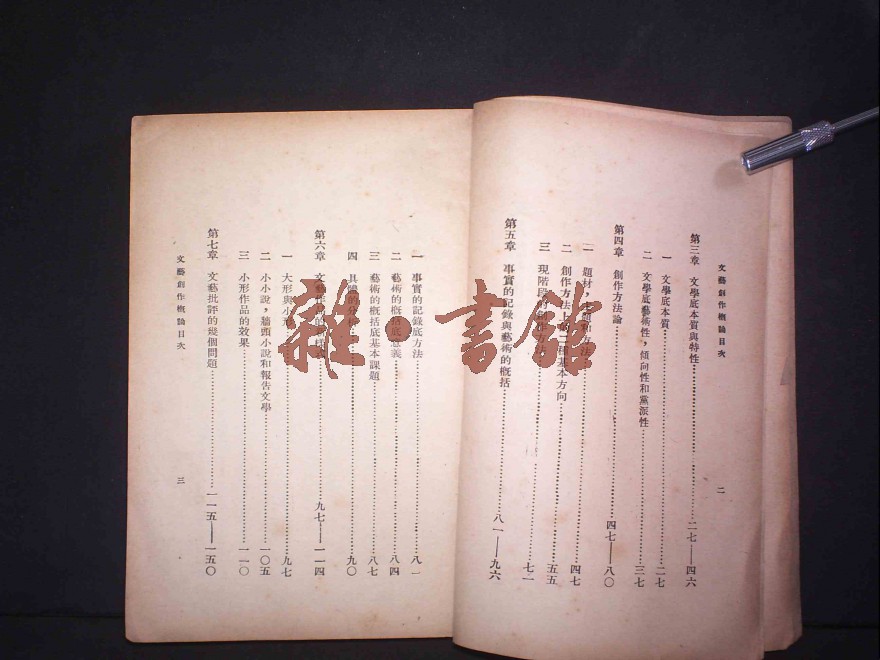 文藝創作概論目次
二
第三章　文學底本質與特性……二七——四六
一　文學底本質……二七
二　文學底藝術性，傾向性和黨派性……三七
第四章　創作方法論……四七——八〇
一　題材……方法……四七
二　創作方法上的二種基本方向……五五
三　現階段的創作方法……七一
第五章　事實的記錄與藝術的概括……八一——九六
一　事實的記錄底方法……八一
二　藝術的概括底意義……八四
三　藝術的概括底基本課題……八七
四　具體的分析……九〇
第六章　文藝作品的……九七——一一四
一　大形與小形……九七
二　小小說，牆頭小說和報告文學……一〇五
三　小形作品的效果……一一〇
第七章　文藝批評的幾個問題……一一五——一五〇
文藝創作概論目次
三
雜·書館